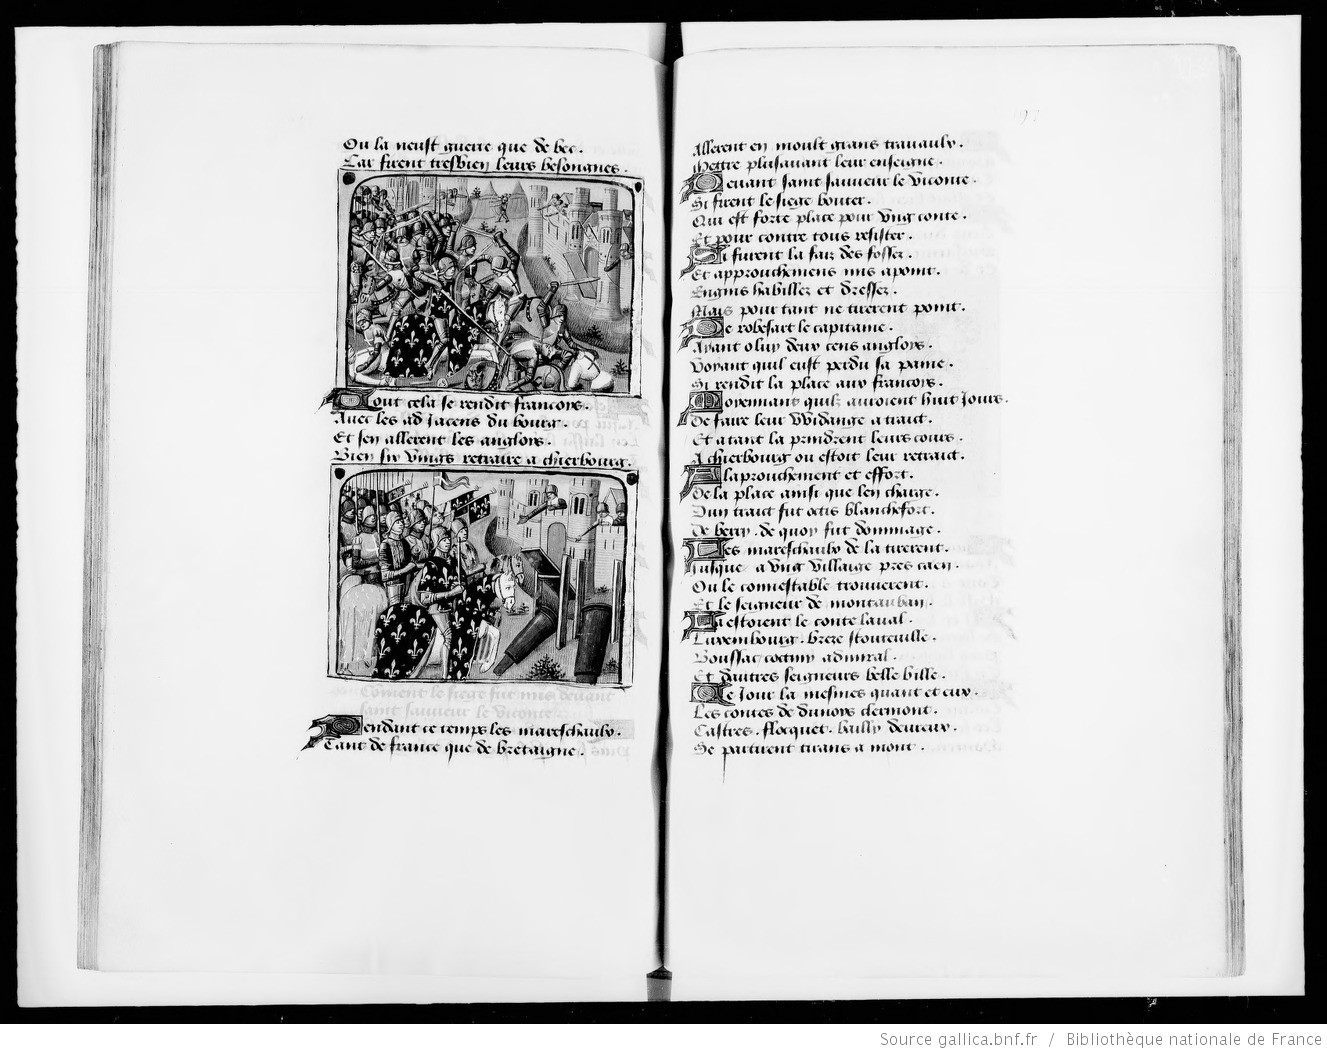 Ou la neust guerre que de bec.
Car firent tresbien leurs besongnes.
Tout cela se rendit francoys.
Avec les adiacens du bourg.
Et sen allerent les angloys.
Bien six vingts retraire a chierbourg.
Coment le siege fut mis devant
saint sauveur le viconte
Pendant ce temps les mareschaulx.
Tant de france que de bretaigne.
97
Allerent en moult grans travaulx.
Mettre plusavant leur enseigne.
Devant saint sauveur le viconte.
Si firent le siege bouter.
Qui est forte place pour ung conte.
Et pour contre tous resister.
Si furent la faiz des fossez.
Et approuchemens mis apoint.
Engins habillez et dressez.
Mais pourtant ne tirerent point.
De robesart le capitaine.
Ayant o luy deux cens angloys.
Voyant quil eust perdu sa paine.
Si rendit la place aux francoys.
Moyennant quilz auroient huit jours.
De faire leur vuidange a traict.
Et a tant la prindrent leurs cours.
A chierbourg ou estoit leur retraict.
A laprouchement et effort.
De la place ainsi que len charge.
Dun traict fut octis blanchefort.
De berry. de quoy fut dommage.
Les mareschaulx de la tirerent.
Jusque a ung villaige pres caen.
Ou le connestable trouverent.
Et le seigneur de montauban.
La estoient le conte laval.
Luxembourg. breze stouteville.
Boussac, coetivy admiral.
Et dautres seigneurs belle bille.
Ce jour la mesmes quant et eux.
Les contes de dunoys clermont.
Castres. flocquet. bailly devreux.
Se partirent tirans a mont.
Source gallica.bnf.fr / Bibliothèque nationale de France